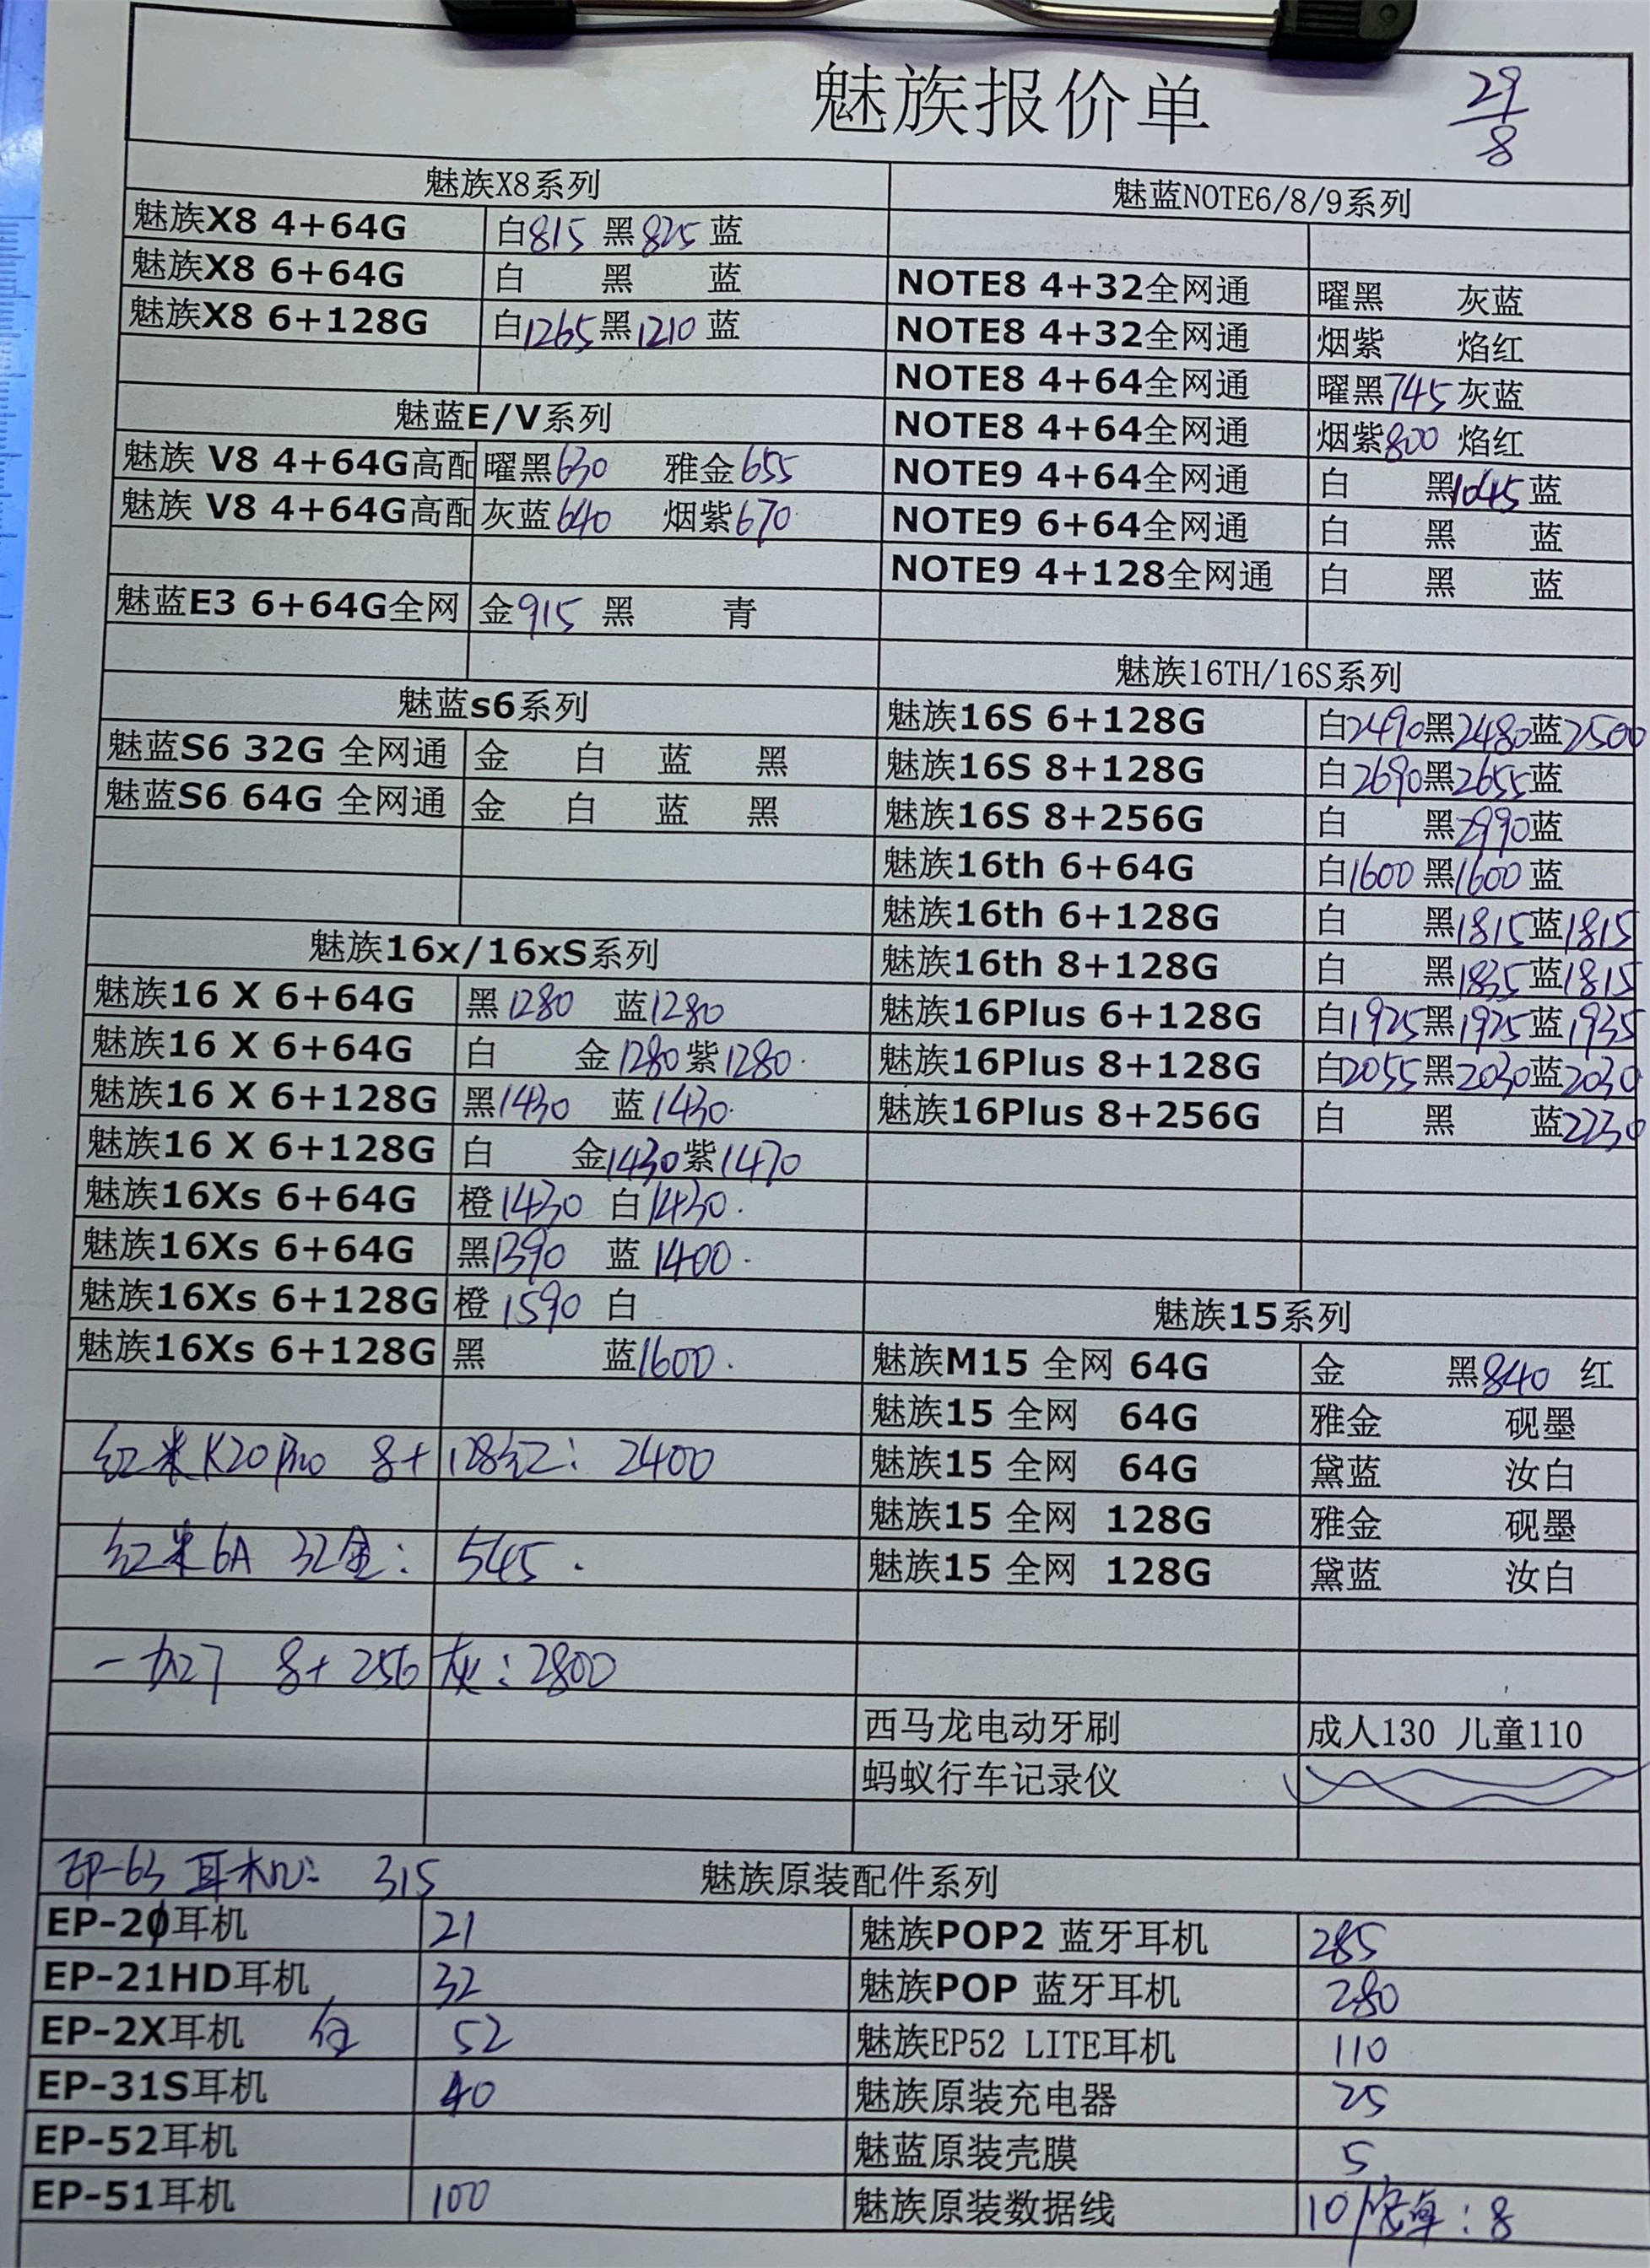 魅族报价单 29/8
魅族X8系列
魅族X8 4+64G 白815 黑825 蓝
魅族X8 6+64G 白 黑 蓝
魅族X8 6+128G 白1265 黑1210 蓝
魅蓝E/V系列
魅族 V8 4+64G高配 曜黑630 雅金655
魅族 V8 4+64G高配 灰蓝640 烟紫670
魅蓝E3 6+64G全网 金915 黑 青
魅蓝s6系列
魅蓝S6 32G 全网通 金 白 蓝 黑
魅蓝S6 64G 全网通 金 白 蓝 黑
魅族16x/16xS系列
魅族16 X 6+64G 黑1280 蓝1280
魅族16 X 6+64G 白 金1280 紫1280.
魅族16 X 6+128G 黑1430 蓝1430.
魅族16 X 6+128G 白 金1430 紫1470
魅族16Xs 6+64G 橙1430 白1430.
魅族16Xs 6+64G 黑1390 蓝1400.
魅族16Xs 6+128G 橙1590 白
魅族16Xs 6+128G 黑 蓝1600.
红米K20Pro 8+128红: 2400
红米6A 32金: 545.
一加7 8+256灰:2800
魅蓝NOTE6/8/9系列
NOTE8 4+32全网通 曜黑 灰蓝
NOTE8 4+32全网通 烟紫 焰红
NOTE8 4+64全网通 曜黑745 灰蓝
NOTE8 4+64全网通 烟紫800 焰红
NOTE9 4+64全网通 白 黑1045 蓝
NOTE9 6+64全网通 白 黑 蓝
NOTE9 4+128全网通 白 黑 蓝
魅族16TH/16S系列
魅族16S 6+128G 白2490 黑2480 蓝2500
魅族16S 8+128G 白2690 黑2655 蓝
魅族16S 8+256G 白 黑2990 蓝
魅族16th 6+64G 白1600 黑1600 蓝
魅族16th 6+128G 白 黑1815 蓝1815
魅族16th 8+128G 白 黑1835 蓝1815
魅族16Plus 6+128G 白1925 黑1925 蓝1935
魅族16Plus 8+128G 白2055 黑2030 蓝2030
魅族16Plus 8+256G 白 黑 蓝2230
魅族15系列
魅族M15 全网 64G 金 黑840 红
魅族15 全网 64G 雅金 砚墨
魅族15 全网 64G 黛蓝 汝白
魅族15 全网 128G 雅金 砚墨
魅族15 全网 128G 黛蓝 汝白
西马龙电动牙刷 成人130 儿童110
蚂蚁行车记录仪
EP-63 耳机: 315 魅族原装配件系列
EP-20耳机 21 魅族POP2 蓝牙耳机 285
EP-21HD耳机 32 魅族POP 蓝牙耳机 280
EP-2X耳机 白 52 魅族EP52 LITE耳机 110
EP-31S耳机 40 魅族原装充电器 25
EP-52耳机 魅蓝原装壳膜 5
EP-51耳机 100 魅族原装数据线 10/安卓:8